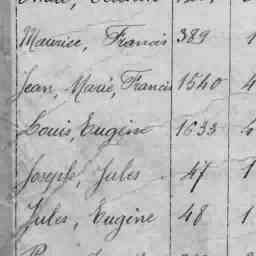 Maurice, Francis 389 1
Jean, Marie, Francis 1540 4
Louis, Eugène 1633 4
Joseph, Jules 47 1
Jules, Eugène 48 1